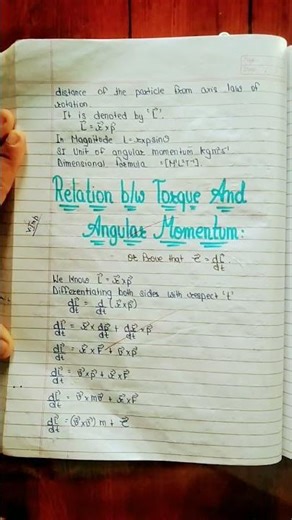 distance of the particle from axis law of
rotation.
It is denoted by 'L⃗'.
L⃗ = r⃗ x p⃗
In Magnitude L = rxpsinθ
SI Unit of angular momentum kgm²s⁻¹
Dimensional formula = [M¹L²T⁻¹]
Relation b/w Torque And
Angular Momentum:
or Prove that τ⃗ = dL⃗/dt
We know L⃗ = r⃗ x p⃗
Differentiating both sides with respect 't'
dL⃗/dt = d/dt (r⃗ x p⃗)
dL⃗/dt = r⃗ x dp⃗/dt + dr⃗/dt x p⃗
dL⃗/dt = r⃗ x F⃗ + v⃗ x p⃗
dL⃗/dt = v⃗ x p⃗ + r⃗ x F⃗
dL⃗/dt = v⃗ x mv⃗ + r⃗ x F⃗
dL⃗/dt = (v⃗ x v⃗) m + τ⃗